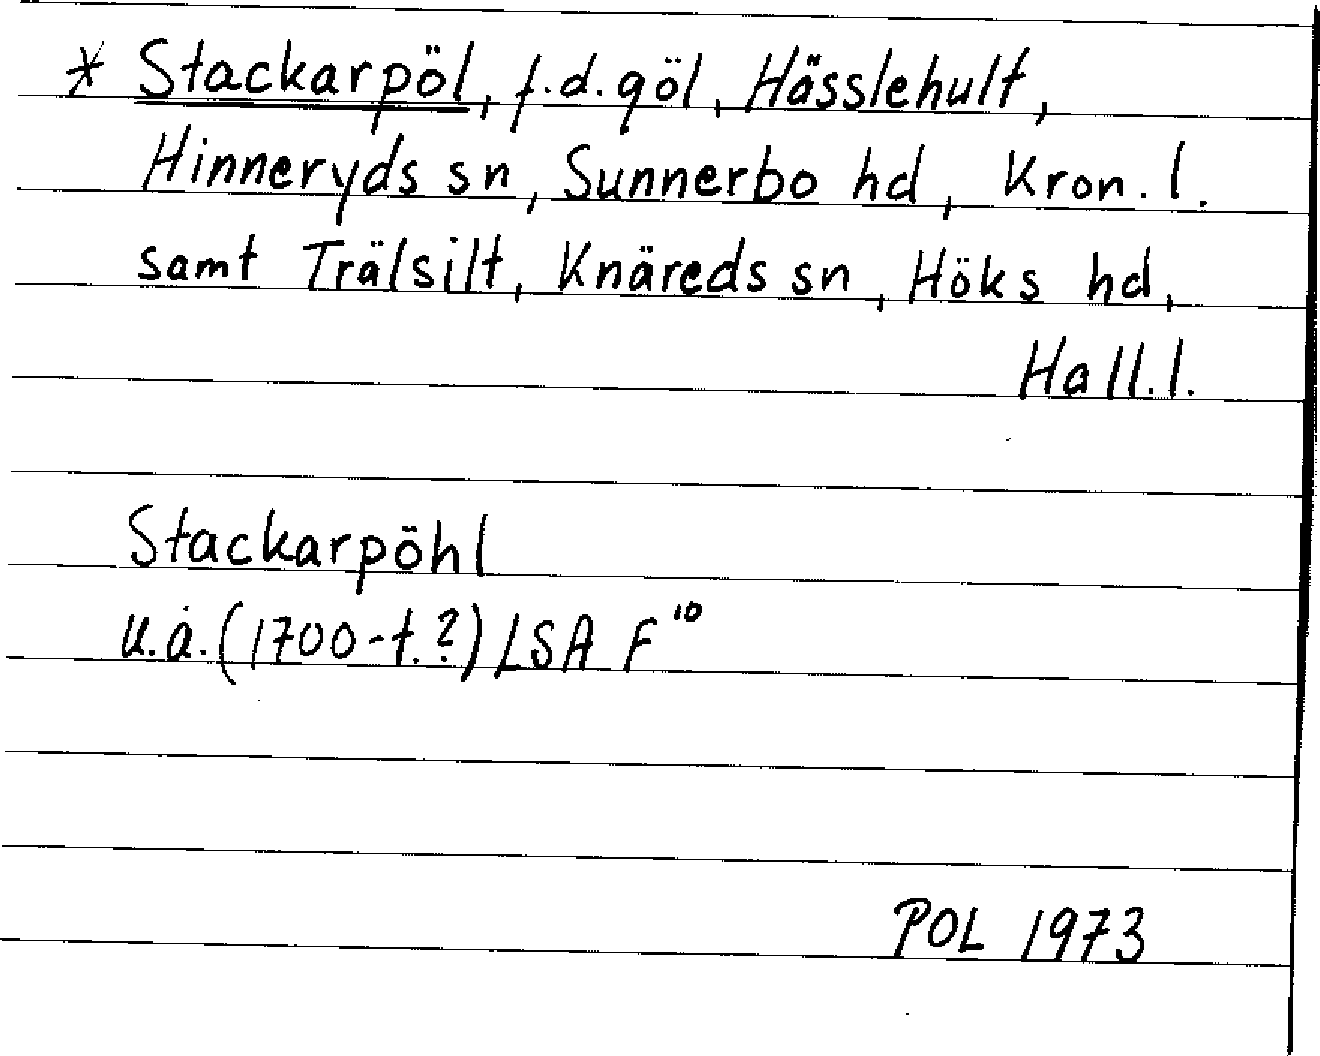 * Stackarpöl, f.d. göl, Hässlehult,
Hinneryds sn, Sunnerbo hd, Kron. l.
samt Trälsilt, Knäreds sn, Höks hd,
Hall. l.
Stackarpöhl
u.å. (1700-t.?) LSA F¹⁰
POL 1973